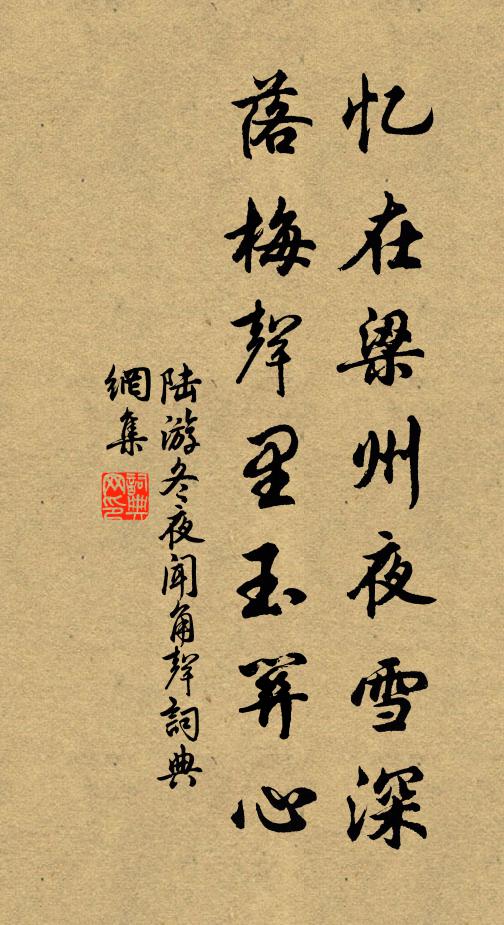 忆在梁州夜雪深
落梅聲里玉關心
陆游冬夜闻角聲詞典
網集
詞典網印